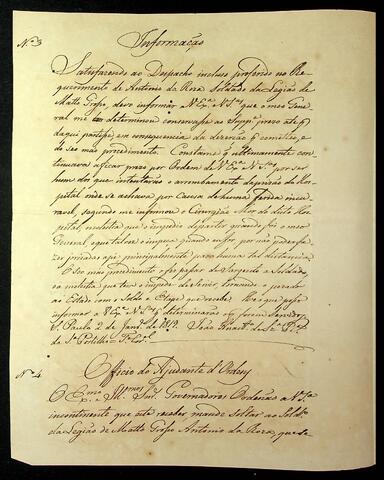 N.º 3
Informação
Satisfazendo ao Despacho incluso proferido no Re-
querimento de Antonio da Roza Soldado da Legião de
Matto Grosso, devo informar a V. Ex.ª que o meu Gene-
ral me determinou conservasse ao Supp.e prezo até q
daqui partisse em consequencia da dezerção q cometteo, e
de seo máo procedimento. Constame q ultimamente con-
tinuava a ficar prezo por Ordem de V. Ex.ª por ser
hum dos que intentarão o arrombamento da prizão do Hos-
pital onde se achava por Causa de huma ferida incu-
ravel, segundo me informou o Cirurgião Mor do dito Hos-
pital, molestia que o impedio de partir quando foi o meo
General, e que talvez o impeça quando for, por não poder fa-
zer jornadas a pé principalmente para huma tal distancia.
O seo máo procedimento o fez passar de Sargento a Soldado,
e a molestia que tem o impede de servir, tornando-o pezado
ao Estado com o Soldo e Etape que recebe. He o que posso
informar a V. Ex.ª determinará o que for servido.
S. Paulo 2 de Jan.º de 1819. João
da S.ª Portelli
N.º 4
Officio do Ajudante d'Ordens
O Ex.mo Ill.mos Snr.es Governadores Ordenão a V. S.ª
incontinente que este receber, mande soltar ao Sold.º
da Legião de Matto Grosso Antonio da Roza, que se-